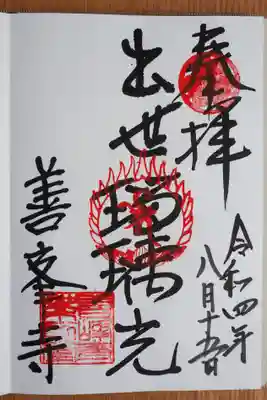 奉拝
令和四年
八月十五日
出世瑠璃光
善峯寺